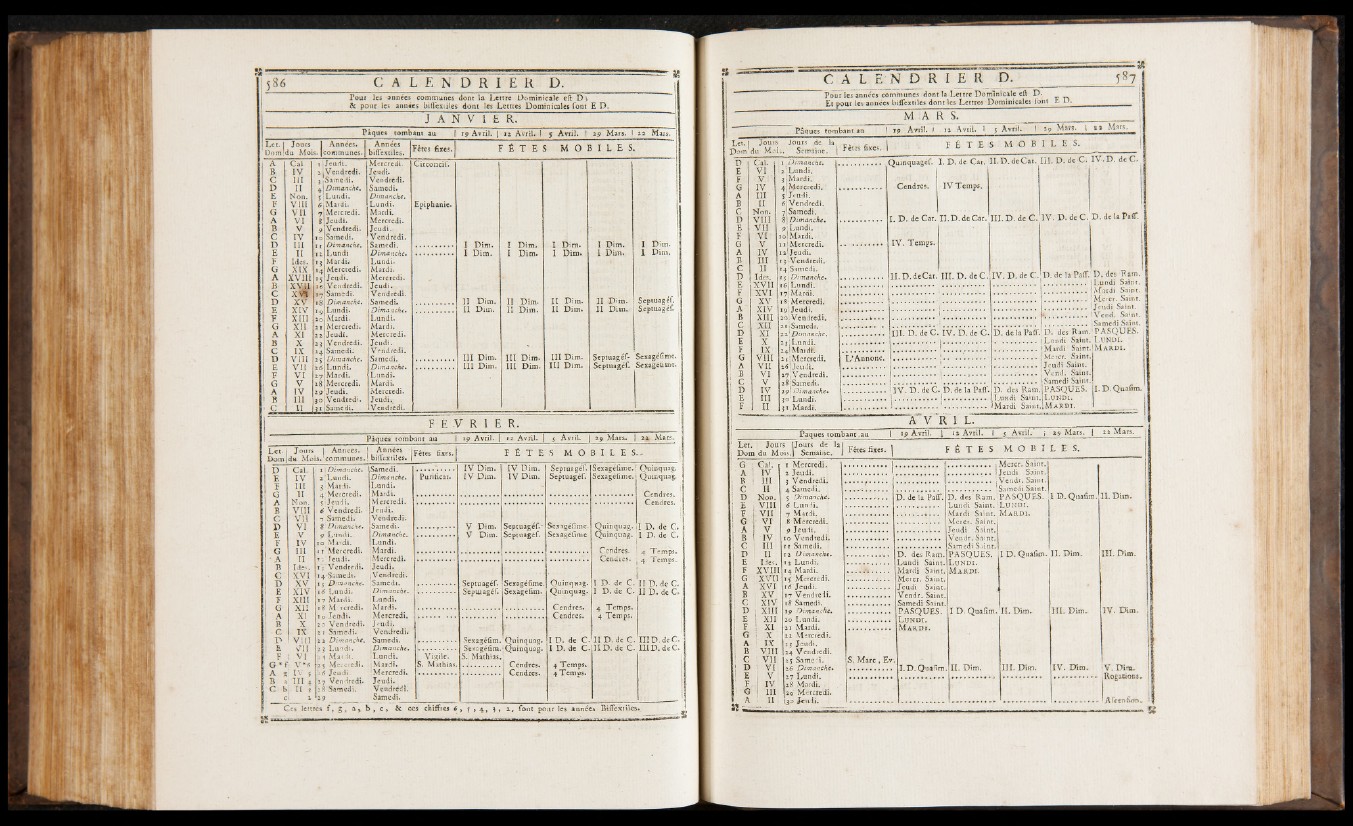 586 CALENDRIER D.
Pour les années communes dont la Lettre Dominicale est D;
& pour les années bissextiles dont les Lettres Dominicales sont E D.
JANVIER.
Pâques tombant au 19 Avril. 12 Avril. 5 Avril. 29 Mars. 22 Mars.
Let. Dom Jours du Mois. Années. communes. Années bissextiles. Fêtes fixes. FÊTES MOBILES.
A Cal. 1 Jeudi. Mercredi. Circoncis.
B IV 2 Vendredi. Jeudi.
C III 3 Samedi. Vendredi.
D II 4 Dimanche. Samedi.
E Non. 5 Lundi. Dimanche.
F VIII 6 Mardi. Lundi. Epiphanie.
G VII 7 Mercredi. Mardi.
A VI 8 Jeudi. Mercredi.
B V 9 Vendredi. Jeudi.
C IV 10 Samedi. Vendredi.
D III 11 Dimanche. Samedi. I Dim. I Dim. I Dim. I Dim. I Dim.
E II 12 Lundi Dimanche. I Dim. I Dim. I Dim. I Dim. I Dim.
F Ides. 13 Mardi. Lundi.
G XIX 14 Mercredi. Mardi.
A XVIII 15 Jeudi. Mercredi.
B XVII 16 Vendredi. Jeudi.
C XVI 17 Samedi. Vendredi.
D XV 18 Dimanche. Samedi. II Dim. II Dim. II Dim. II Dim. Septuagés.
E XIV 19 Lundi. Dimanche. II Dim. II Dim. II Dim. II Dim. Septuagés.
F XIII 20 Mardi. Lundi.
G XII 21 Mercredi. Mardi.
A XI 22 Jeudi. Mercredi.
B X 23 Vendredi. Jeudi.
C IX 24 Samedi. Vendredi.
D VIII 25 Dimanche. Samedi. III Dim. III Dim. III Dim. Septuagés. Sexagésime.
E VII 26 Lundi. Dimanche. III Dim. III Dim. III Dim. Septuagés. Sexagésime.
F VI 27 Mardi. Lundi.
G V 28 Mercredi. Mardi.
A IV 29 Jeudi. Mercredi.
B III 30 Vendredi. Jeudi.
C II 31 Samedi. Vendredi.
FEVRIER.
Pâques tombant au 19 Avril. 12 Avril. 5 Avril. 29 Mars. 22 Mars.
Let. Dom Jours du Mois. Années. communes. Années bissextiles. Fêtes fixes. FÉTES MOBILES.
D Cal. 1 Dimanche. Samedi. IV Dim. IV Dim. Septuagés. Sexagésime. Quinquag.
E IV 2 Lundi. Dimanche. Purificat. IV Dim. IV Dim. Septuagés. Sexagésime. Quinquag.
F III 3 Mardi. Lundi.
G II 4 Mercredi. Mardi. Cendres.
A Non. 5 Jeudi. Mercredi. Cendres.
B VIII 6 Vendredi. Jeudi.
C VII 7 Samedi. Vendredi.
D VI 8 Dimanche. Samedi. V Dim. Septuagés. Sexagésime. Quinquag. I D. de C.
E V 9 Lundi. Dimanche. V Dim. Septuagés. Sexagésime. Quinquag. I D. de C.
F IV 10 Mardi. Lundi.
G III 11 Mercredi. Mardi. Cendres. 4 Temps.
A II 12 Jeudi. Mercredi. Cendres. 4 Temps.
B Ides. 13 Vendredi. Jeudi.
C XVI 14 Samedi. Vendredi.
D XV 15 Dimanche. Samedi. Septuagés. Sexagésime. Quinquag. I D. de C. II D. de C.
E XIV 16 Lundi. Dimanche. Septuagés. Sexagésim. Quinquag. I D. de C. II D. de C.
F XIII 17 Mardi. Lundi.
G XII 18 Mercredi. Mardi. Cendres. 4 Temps.
A XI 19 Jeudi. Mercredi. Cendres. 4 Temps.
B X 20 Vendredi. Jeudi.
C IX 21 Samedi. Vendredi.
D VIII 22 Dimanche. Samedi. Sexagésim. Quinquag. I D. de C. II D. de C. III D. de C.
E VII 23 Lundi. Dimanche. Sexagésim. Quinquag. I D. de C. II D. de C. III D. de C.
F VI 24 Mardi. Lundi. Vigile. S. Mathias.
G*f V*6 25 Mercredi. Mardi. S. Mathias. Cendres. 4 Temps.
A g IV 5 26 Jeudi. Mercredi. Cendres. 4 Temps.
B a III 4 27 Vendredi. Jeudi.
C b II 3 28 Samedi. Vendredi.
c 2 29 Samedi.
Ces lettres f, g, a, b, c, & ces chiffres 6, 5, 4, 3, 2, sont pour les années Bissextiles.
CALENDRIER D. 587
Pour les années communes dont la Lettre Dominicale est D.
Et pour les années bissextiles dont les Lettres Dominicales sont E D.
MARS.
Pâques tombant au 19 Avril. 12 Avril. 5 Avril. 29 Mars. 22 Mars.
Let. Dom Jours du Mois. Jours de la Semaine. Fêtes fixes. FÉTES MOBILES.
D Cal. 1 Dimanche. Quinquages. I. D. de Car. II. D. de Car. III. D. de C. IV. D. de C.
E VI 2 Lundi.
F V 3 Mardi.
G IV 4 Mercredi. Cendres. IV Temps.
A III 5 Jeudi.
B II 6 Vendredi.
C Non. 7 Samedi.
D VIII 8 Dimanche. I. D. de Car. II. D. de Car. III. D. de C. IV. D. de C. D. de la Pass.
E VII 9 Lundi.
F VI 10 Mardi.
G V 11 Mercredi. IV. Temps.
A IV 12 Jeudi.
B III 13 Vendredi.
C II 14 Samedi.
D Ides. 15 Dimanche. II. D. de Car. III. D. de C. IV. D. de C. D. de la Pass. D. des Ram.
E XVII 16 Lundi. Lundi Saint.
F XVI 17 Mardi. Mardi Saint.
G XV 18 Mercredi. Mercr. Saint.
A XIV 19 Jeudi. Jeudi Saint.
B XIII 20 Vendredi. Vend. Saint.
C XII 21 Samedi. Samedi Saint.
D XI 22 Dimanche. III. D. de C. IV. D. de C. D. de la Pass. D. des Ram. PASQUES.
E X 23 Lundi. Lundi Saint. LUNDI.
F IX 24 Mardi. Mardi Saint. MARDI.
G VIII 25 Mercredi. L'Annonc. Mercr. Saint.
A VII 26 Jeudi. Jeudi Saint.
B VI 27 Vendredi. Vend. Saint.
C V 28 Samedi. Samedi Saint.
D IV 29 Dimanche. IV. D. de C. D. de la Pass. D. des Ram. PASQUES. I. D. Quasim.
E III 30 Lundi. Lundi Saint. LUNDI.
F II 31 Mardi. Mardi Saint. MARDI.
AVRIL.
Paques tombant au 19 Avril. 12 Avril. 5 Avril. 29 Mars. 22 Mars.
Let. Dom. Jours du Mois. Jours de la Semaine. Fêtes fixes. FÉTES MOBILES.
G Cal. 1 Mercredi. Mercr. Saint.
A IV 2 Jeudi. Jeudi Saint.
B III 3 Vendredi. Vendr. Saint.
C II 4 Samedi. Samedi Saint.
D Non. 5 Dimanche. D. de la Pass. D. des Ram. PASQUES. I D. Quasim. II. Dim.
E VIII 6 Lundi. Lundi Saint. LUNDI.
F VII 7 Mardi. Mardi Saint. MARDI.
G VI 8 Mercredi. Mercr. Saint.
A V 9 Jeudi. Jeudi Saint.
B IV 10 Vendredi. Vendr. Saint.
C III 11 Samedi. Samedi Saint.
D II 12 Dimanche. D. des Ram. PASQUES. I D. Quasim. II. Dim. III. Dim.
E Ides. 13 Lundi. Lundi Saint. LUNDI.
F XVIII 14 Mardi. Mardi Saint. MARDI.
G XVII 15 Mercredi. Mercr. Saint.
A XVI 16 Jeudi. Jeudi Saint.
B XV 17 Vendredi. Vendr. Saint.
C XIV 18 Samedi. Samedi Saint.
D XIII 19 Dimanche. PASQUES. I D. Quasim. II. Dim. III. Dim. IV. Dim.
E XII 20 Lundi. LUNDI.
F XI 21 Mardi. MARDI.
G X 22 Mercredi.
A IX 23 Jeudi.
B VIII 24 Vendredi.
C VII 25 Samedi. S. Marc, Ev.
D VI 26 Dimanche. I. D. Quasim. II. Dim. III. Dim. IV. Dim. V. Dim.
E V 27 Lundi. Rogations.
F IV 28 Mardi.
G III 29 Mercredi.
A II 30 Jeudi. Ascension.